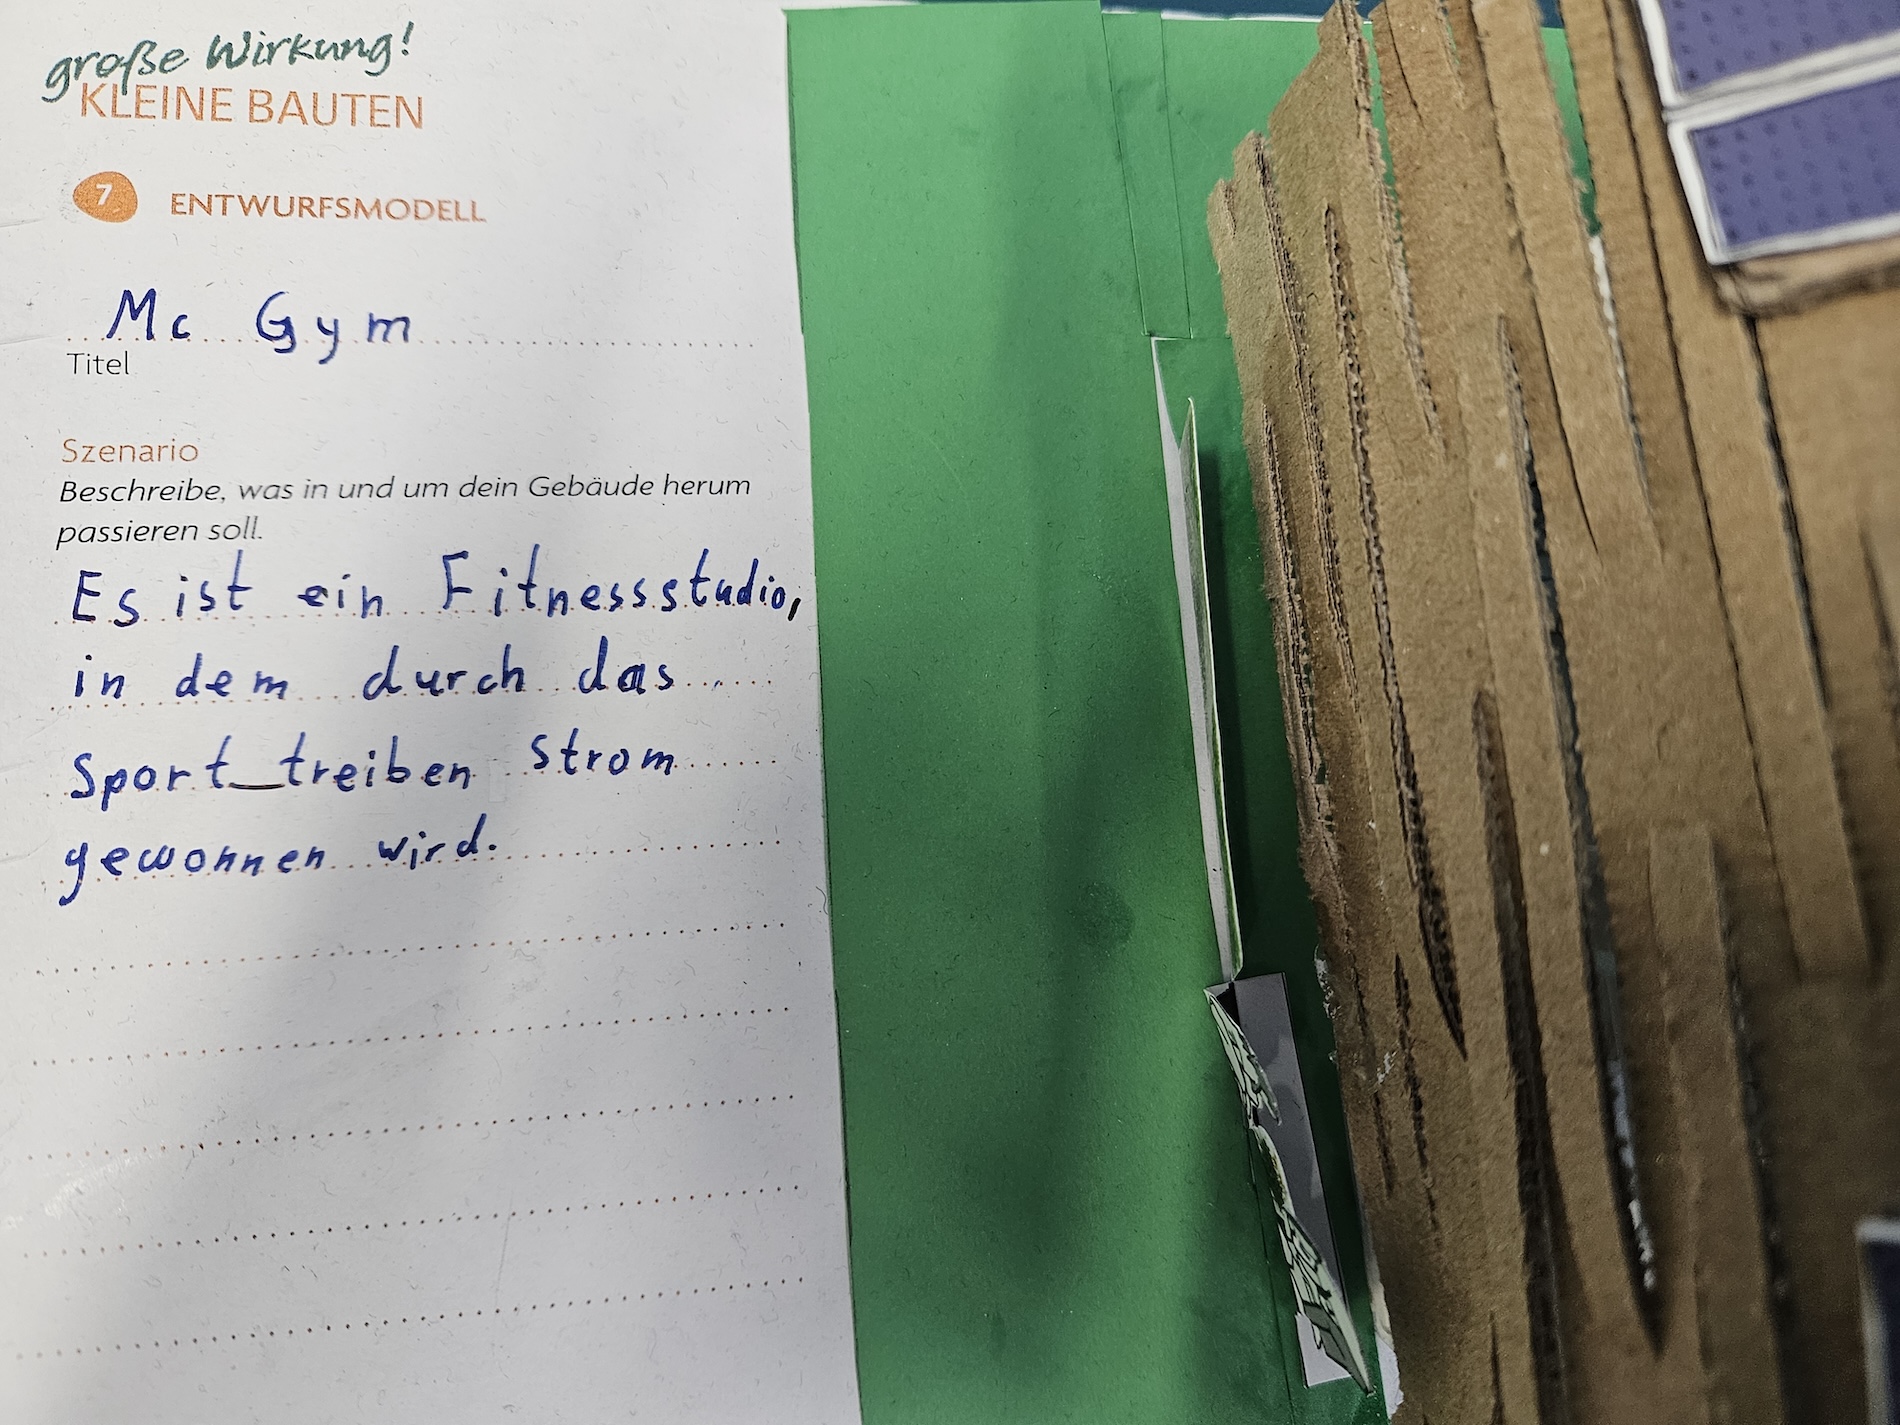 große Wirkung!
KLEINE BAUTEN
7 ENTWURFSMODELL
Mc Gym
Titel
Szenario
Beschreibe, was in und um dein Gebäude herum
passieren soll.
Es ist ein Fitnessstudio,
in dem durch das
Sport_treiben Strom
gewonnen wird.